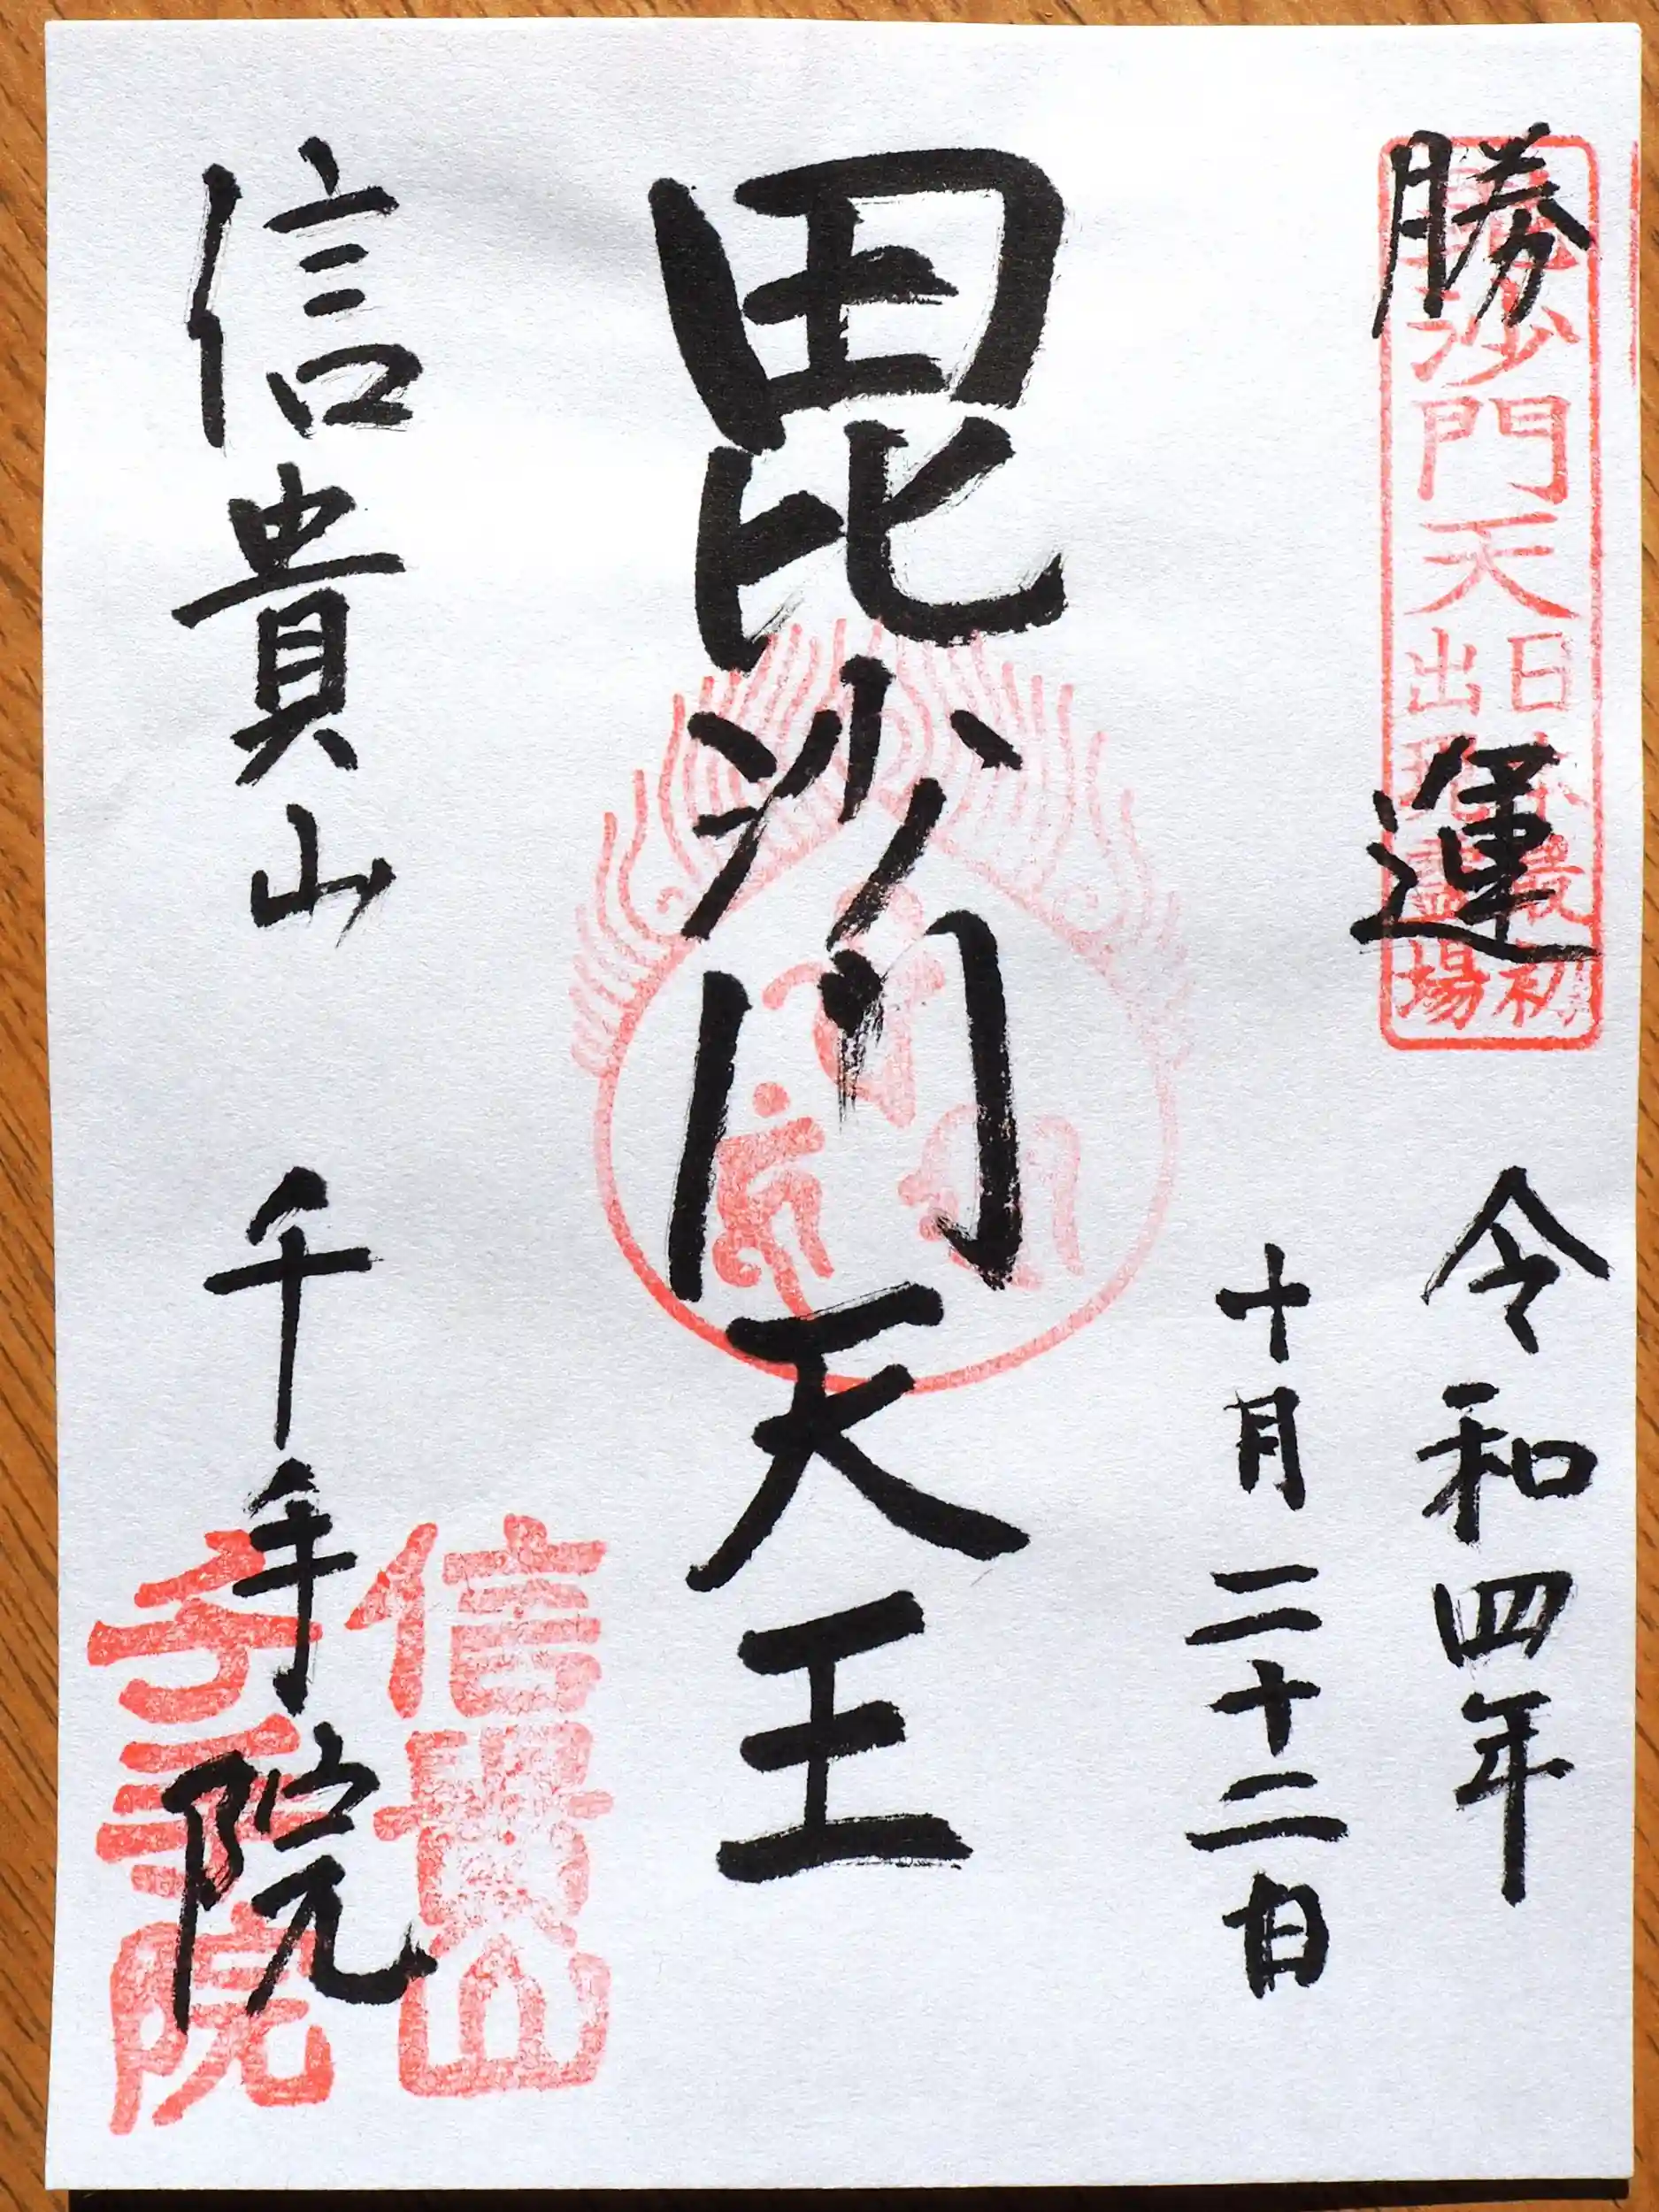 勝運
毘沙門天
日本最初
出現霊場
令和四年
十月二十二日
毘沙門天王
信貴山 千手院
信貴山
千手院